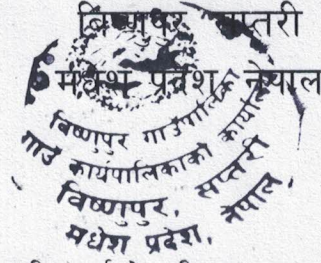 बिष्णुपुर सप्तरी
मधेश प्रदेश नेपाल
बिष्णुपुर गाउँपालिका
गाउँ कार्यपालिकाको कार्यालय
विष्णुपुर, सप्तरी
मधेश प्रदेश, नेपाल,